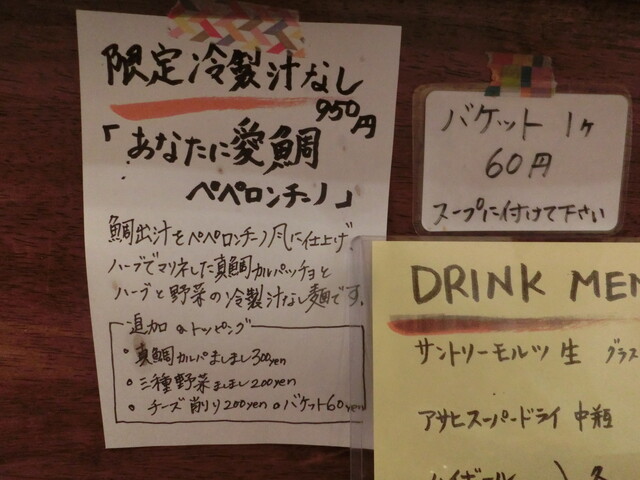 限定冷製汁なし
950円
「あなたに愛鯛
ペペロンチーノ」
鯛出汁をペペロンチーノ風に仕上げ
ハーブでマリネした真鯛カルパッチョと
ハーブと野菜の冷製汁なし麺です。
追加のトッピング
・真鯛カルパましまし300yen
・三種野菜ましまし200yen
・チーズ削り200yen ・バケット60yen
バケット 1ヶ
60円
スープに付けて下さい
DRINK MEN
サントリーモルツ 生 グラス
アサヒスーパードライ 中瓶